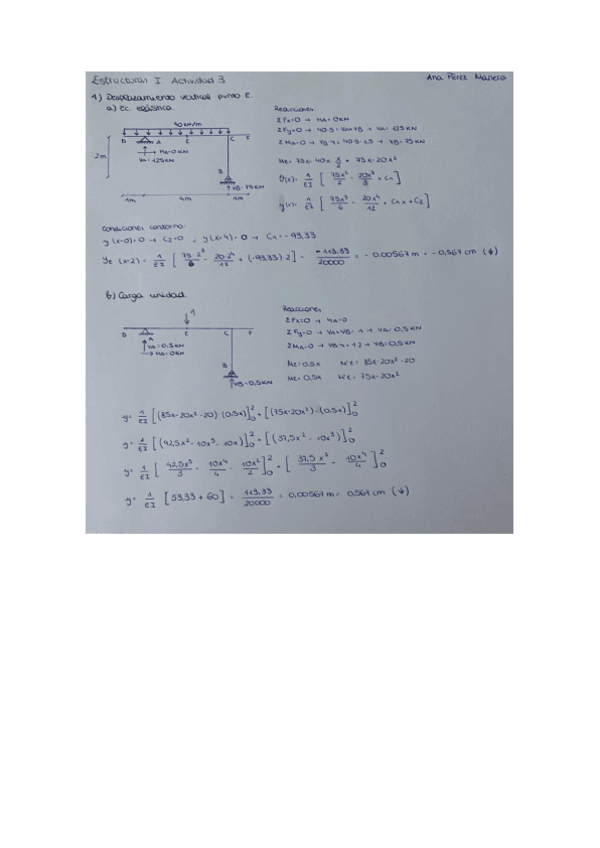 Estructuras I Actividad 3
Ana Pérez Manero
1) Desplazamiento vertical punto E.
a) Ec. elástica
40 kN/m
D A E C F
HA=0KN
VA=125KN
2m
B
VB=75KN
1m 4m 1m
Reacciones:
ΣFx=0 → HA=0KN
ΣFy=0 → 40·5=VA+VB → VA=125KN
ΣMA=0 → VB·4=40·5·1.5 → VB=75KN
Mz=75x-40x x/2 = 75x-20x²
θ(x)= 1/EI [75x²/2 - 20x³/3 + C1]
y(x)= 1/EI [75x³/6 - 20x⁴/12 + C1x + C2]
Condiciones contorno:
y(x=0)=0 → C2=0 ; y(x=4)=0 → C1=-93,33
yE (x=2) = 1/EI [75·2³/6 - 20·2⁴/12 + (-93,33)·2] = -113,33/20000 = -0.00567m = -0,567cm (↓)
b) Carga unidad
1
D E C F
A
VA=0,5KN
HA=0KN
B
VB=0,5KN
Reacciones:
ΣFx=0 → HA=0
ΣFy=0 → VA+VB=1 → VA=0,5KN
ΣMA=0 → VB·4=1·2 → VB=0,5KN
Mz=0,5x M'z=85x-20x²-20
Mz=0,5x M'z=75x-20x²
y= 1/EI [(85x-20x²-20)·(0,5x)]₀² + [(75x-20x²)·(0,5x)]₀²
y= 1/EI [(42,5x²-10x³-10x)]₀² + [(37,5x²-10x³)]₀²
y= 1/EI [42,5x³/3 - 10x⁴/4 - 10x²/2]₀² + [37,5x³/3 - 10x⁴/4]₀²
y= 1/EI [53,33+60] = 113,33/20000 = 0,00567m = 0,567cm (↓)